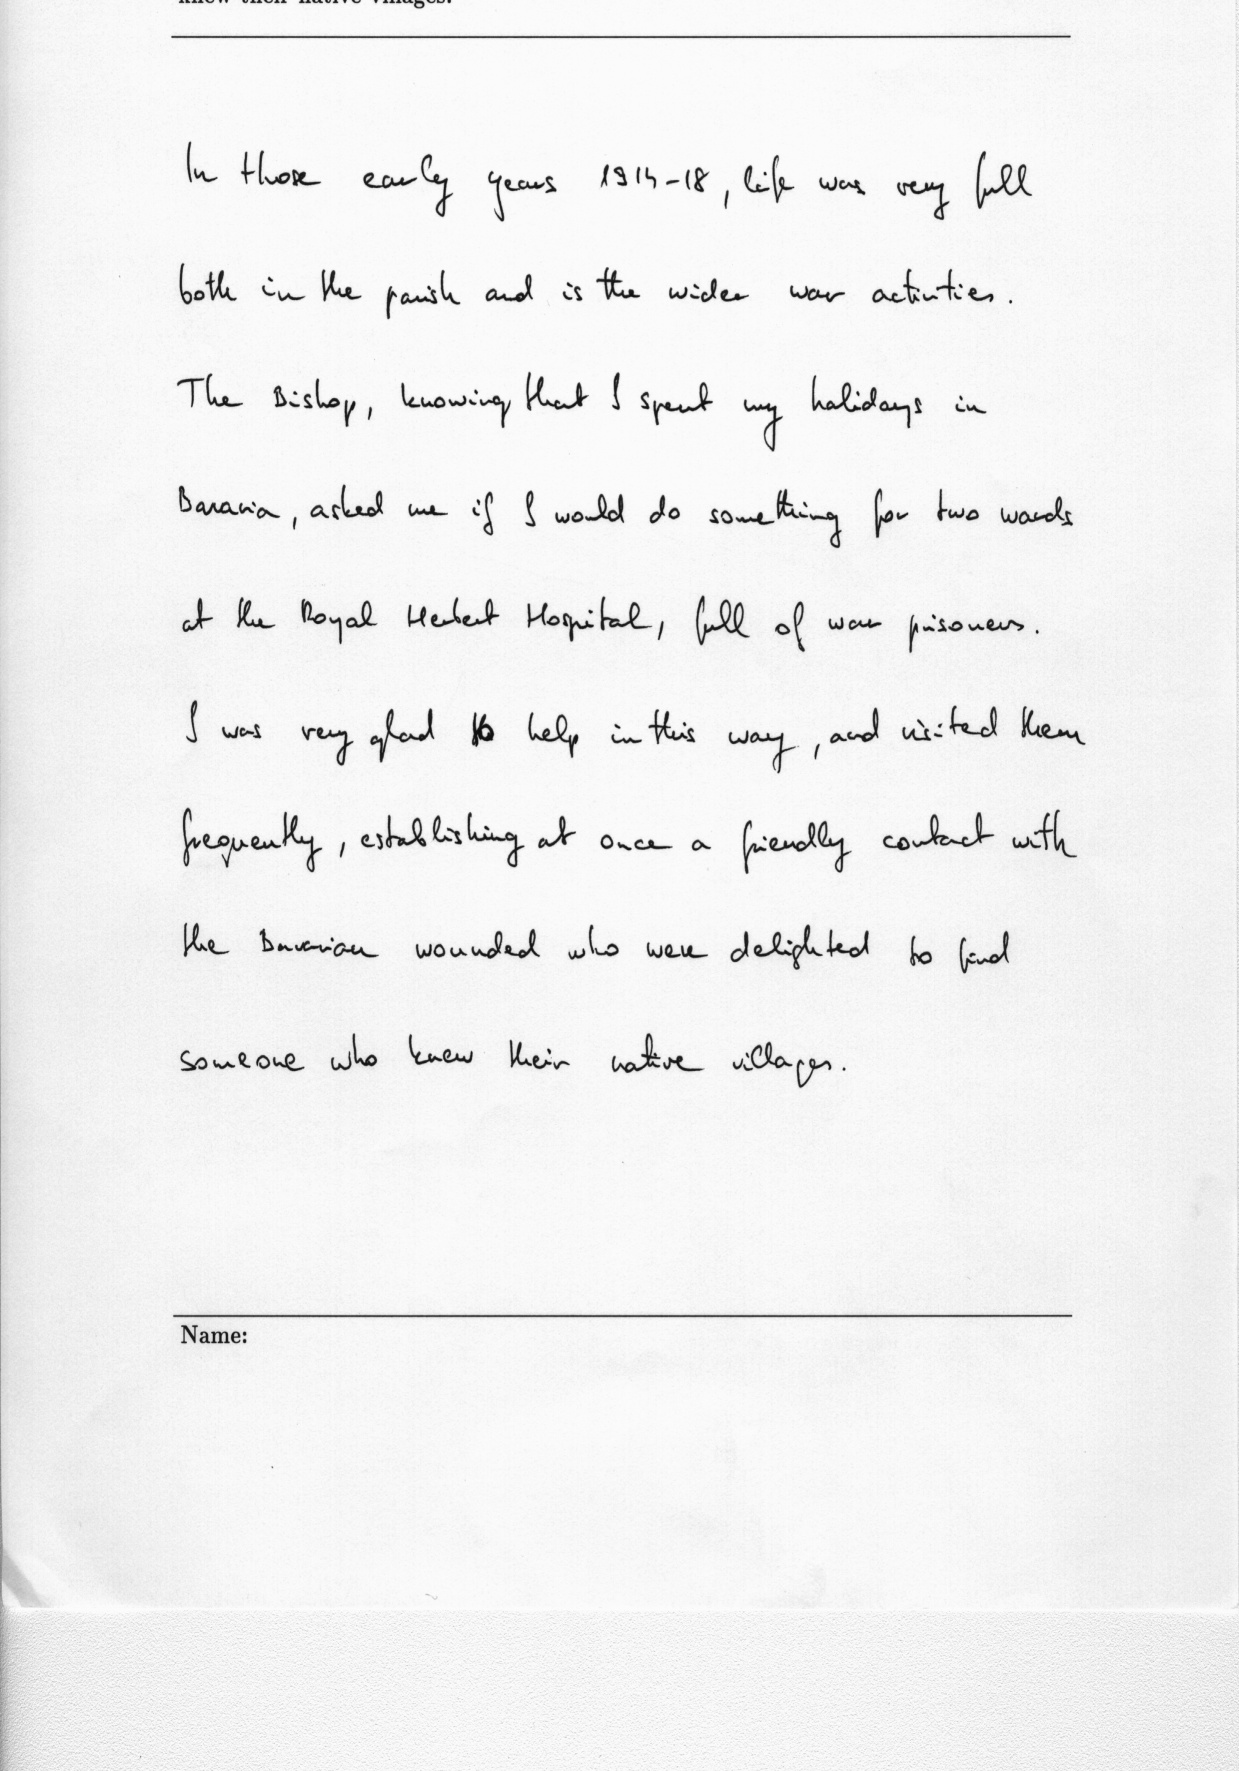 knew their native villages.
In those early years 1914-18, life was very full
both in the parish and is the wider war activities.
The Bishop, knowing that I spent my holidays in
Bavaria, asked me if I would do something for two wards
at the Royal Herbert Hospital, full of war prisoners.
I was very glad to help in this way, and visited them
frequently, establishing at once a friendly contact with
the Bavarian wounded who were delighted to find
someone who knew their native villages.
Name: